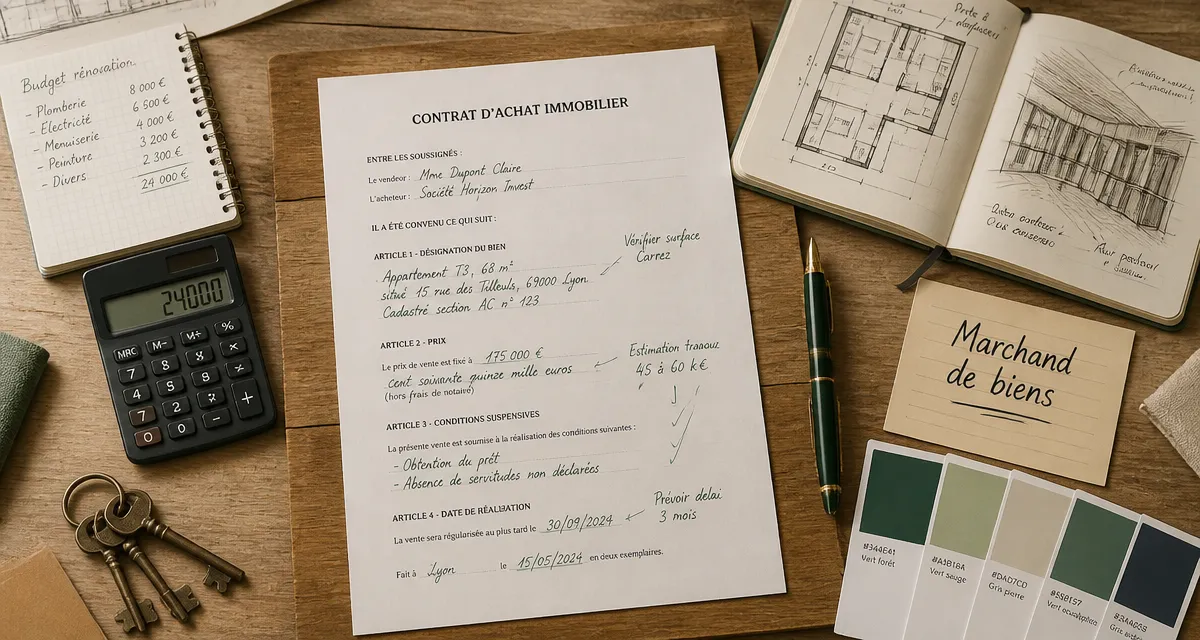 Budget rénovation.
- Plomberie 8 000 €
- Électricité 6 500 €
- Menuiserie 4 000 €
- Peinture 3 200 €
- Divers 2 300 €
24 000 €
24000
MRC M-
%
7 8
4
7 2
0 0
CONTRAT D'ACHAT IMMOBILIER
ENTRE LES SOUSSIGNÉS :
Le vendeur : Mme Dupont Claire
L'acheteur : Société Horizon Invest
IL A ÉTÉ CONVENU CE QUI SUIT :
ARTICLE 1 - DÉSIGNATION DU BIEN
Appartement T3, 68 m²
situé 15 rue des Tilleuls, 69000 Lyon.
Cadastré section AC n° 123
Vérifier surface
Carrez
ARTICLE 2 - PRIX
Le prix de vente est fixé à 175 000 €
cent soixante quinze mille euros
(hors frais de notaire)
Estimation travaux
45 à 60 k€
ARTICLE 3 - CONDITIONS SUSPENSIVES
La présente vente est soumise à la réalisation des conditions suivantes :
- Obtention du prêt
- Absence de servitudes non déclarées
ARTICLE 4 - DATE DE RÉALISATION
La vente sera régularisée au plus tard le 30/09/2024
Prévoir delai
3 mois
Fait à Lyon le 15/05/2024 en deux exemplaires.
Marchand
de biens
#344E41
Vert forêt
#A3B18A
Vert sauge
#DAD7CD
Gris pierre
Vert eucalyptus